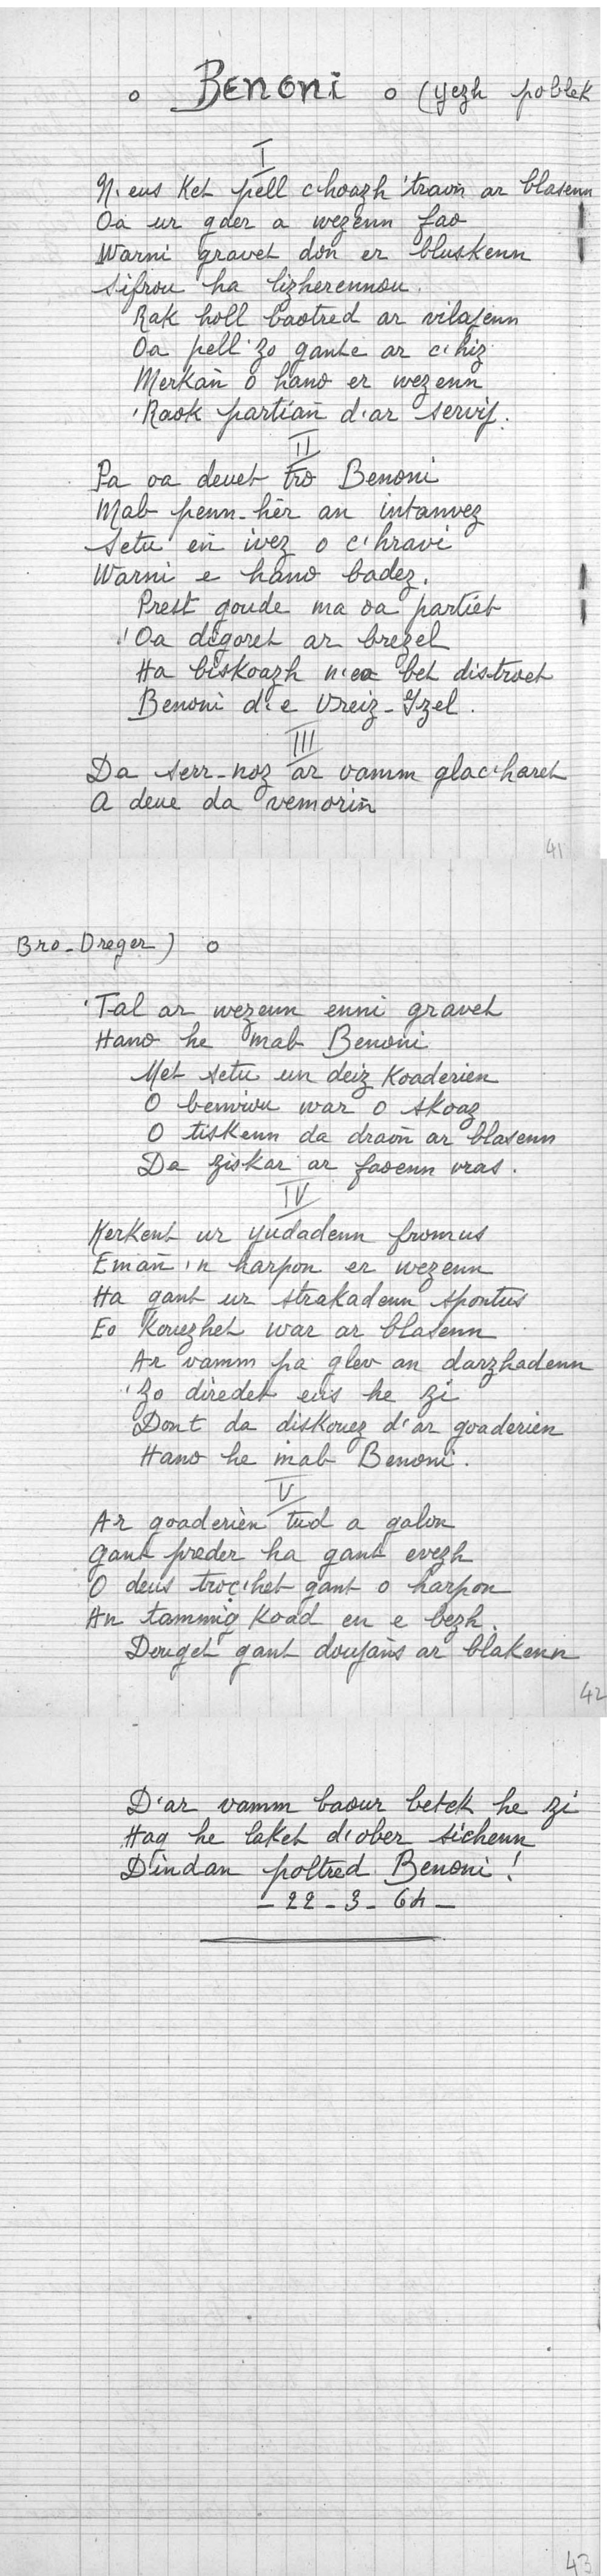 o Benoni o (yezh poblek
I
N'eus ket pell c'hoazh 'traoñ ar blasenn
Oa ur gaer a wezenn fao
Warni gravet don er bluskenn
Sifrou ha lizherennou.
Rak holl baotred ar vilajenn
Oa pell 'zo gante ar c'hiz
Merkañ o hano er wezenn
'Raok partiañ d'ar servij.
II
Pa oa deuet tro Benoni
Mab penn-hêr an intanvez
Setu eñ ivez o c'hravi
Warni e hano badez.
Prest goude ma oa partiet
'Oa digoret ar brezel
Ha biskoazh n'ea bet distroet
Benoni d'e Vreiz-Izel.
III
Da serr-noz ar vamm glac'haret
A deue da vemoriñ
41
Bro-Dreger) o
'Tal ar wezenn enni gravet
Hano he mab Benoni
Met setu un deiz koaderien
O benviou war o skoaz
O tiskenn da draoñ ar blasenn
Da ziskar ar faoenn vras.
IV
Kerkent ur yudadenn fromus
Emañ 'n harpon er wezenn
Ha gant ur strakadenn spontus
Eo kouezhet war ar blasenn
Ar vamm pa glev an darzhadenn
'Zo diredet eus he zi
Dont da diskouez d'ar goaderien
Hano he mab Benoni.
V
Ar goaderien tud a galon
Gant preder ha gant evezh
O deus troc'het gant o harpon
An tammig koad en e bezh.
Douget gant doujañs ar blakenn
42
D'ar vamm baour betek he zi
Hag he laket d'ober sichenn
D'indan poltred Benoni!
- 22 - 3 - 64 -
43